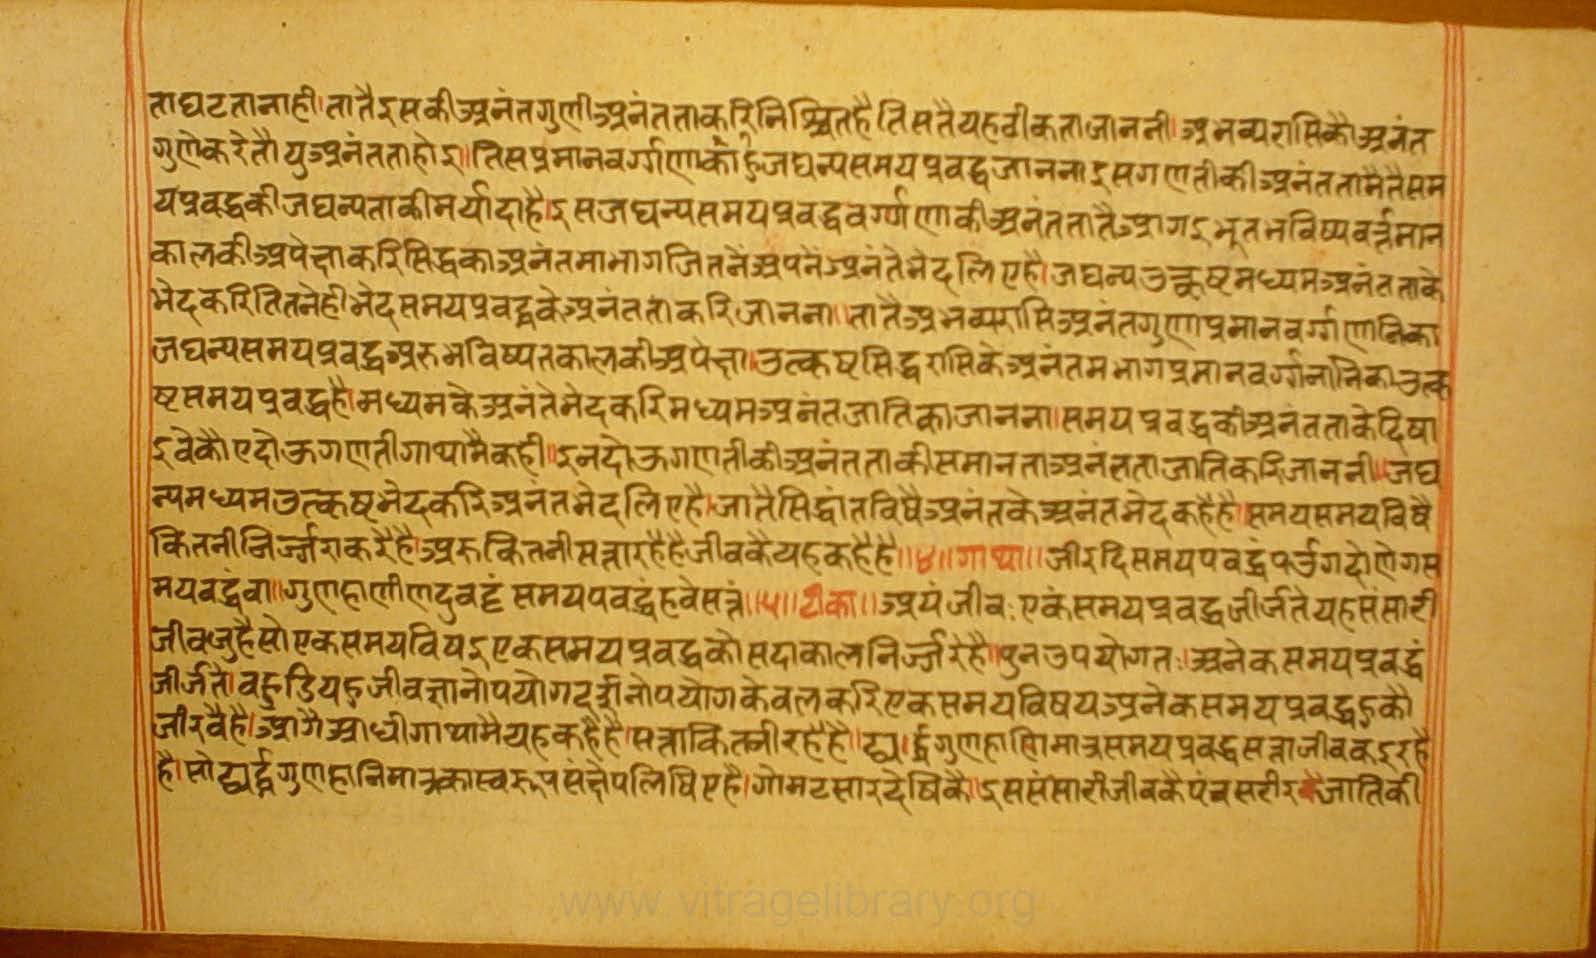 ताघटतानाही।तातैइसकीअनंतगुणीअनंतताकरिनिश्चितहैतिसतैयहठीकताजाननी।अभव्यरासिकौअनंत
गुणेकरेतौयुअनंतताहोइ॥तिसप्रमानवर्ग्गणाकौंहुजघन्यसमयप्रबद्धजानना।इसगणतीकीअनंततामैतैसम
यप्रबद्धकीजघन्यताकीमर्यादाहै।इसजघन्यसमयप्रबद्धवर्ग्गणाकीअनंततातैआगइभूतभविष्यवर्त्तमान
कालकीअपेक्षाकरिसिद्धकाअनंतमाभागजितनेंअपनेंअनंतेभेदलिएहै।जघन्यउत्कृष्टमध्यमअनंतताके
भेदकरितितनेहीभेदसमयप्रबद्धकेअनंतताकरिजानना॥तातैअभव्यरासिअनंतगुणाप्रमानवर्ग्गणानिका
जघन्यसमयप्रबद्धअरुभविष्यतकालकीअपेक्षा।उत्कृष्टसिद्धरासिकेअनंतमभागप्रमानवर्ग्गनानिकाउत्कृ
ष्टसमयप्रबद्धहै।मध्यमकेअनंतेभेदकरिमध्यमअनंतजातिकाजानना॥समयप्रबद्धकीअनंतताकेदिषा
इवेकौएदोऊगणतीगाथामैकही॥इनदोऊगणतीकीअनंतताकीसमानताअनंतताजातिकरिजाननी॥जघ
न्यमध्यमउत्कृष्टभेदकरिअनंतभेदलिएहै।जातैसिद्धांतविषैअनंतकेअनंतभेदकहेहै॥समयसमयविषै
कितनीनिर्ज्जराकरैहै।अरुकितनीसत्तारहैहैजीवकैयहकहैहै॥४॥गाथा॥जीरदिसमयपबद्धंपउगदोणेगस
मयबद्धंवा॥गुणहाणीणदुवड्ढं समयपबद्धंहवेसत्तं॥५॥टीका॥अयंजीवः एकंसमयप्रबद्धजीर्जतेयहसंसारी
जीवजुहैसोएकसमयविषइएकसमयप्रबद्धकोसदाकालनिर्ज्जरेहै॥पुनउपयोगतः।अनेकसमयप्रबद्धं
जीर्जतै।बहुडियहजीवज्ञानोपयोगदर्शनोपयोगकेवलकरिएकसमयविषयअनेकसमयप्रबद्धहुकौ
जीरवैहै।आगैआधीगाथामैयहकहैहै।सत्ताकितनीरहैहै॥द्व्यर्द्धगुणहानिमात्रसमयप्रबद्धसत्ताजीवकइरहै
है।सोद्व्यर्द्धगुणहानिमात्रकास्वरूपसंक्षेपलिषिएहै।गोमटसारदेषिकै।इससंसारीजीवकैपंचसरीरकैजातिकी
www.vitragelibrary.org